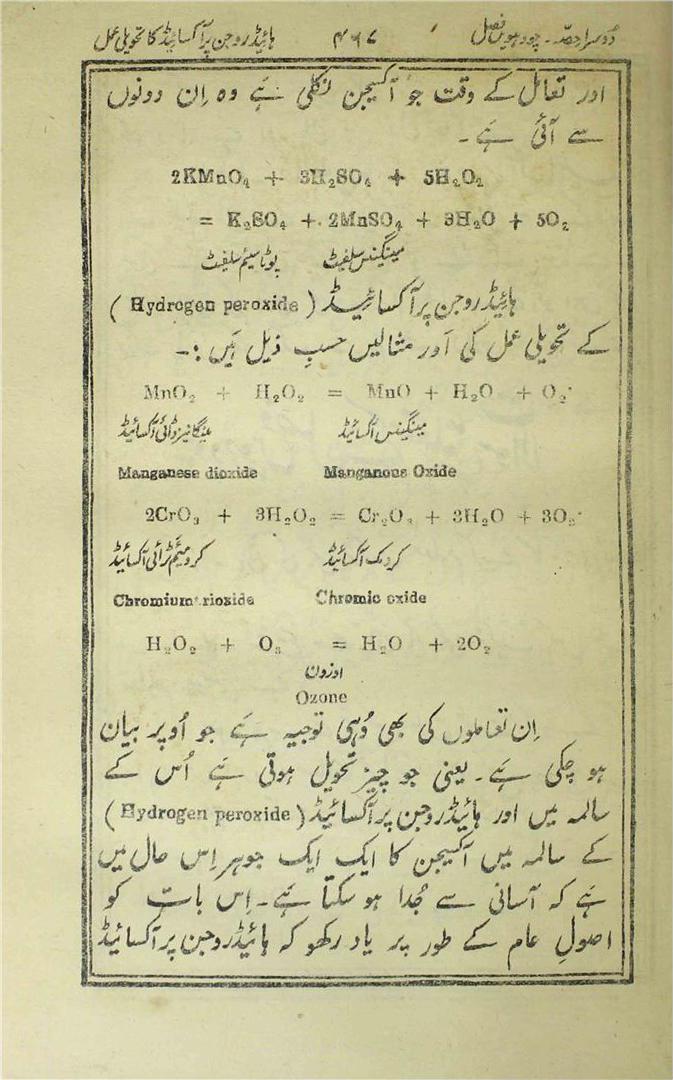 دوسرا حصّہ۔ چودہویں فصل ۴۶۷ ہائیڈروجن پرآکسائیڈ کا تحویلی عمل
اور تعامل کے وقت جو آکسیجن نکلی ہے وہ اِن دونوں
سے آئی ہے۔
2KMnO₄ + 3H₂SO₄ + 5H₂O₂
= K₂SO₄ + 2MnSO₄ + 8H₂O + 5O₂
مینگینس سلفیٹ پوٹاسیئم سلفیٹ
ہائیڈروجن پرآکسائیڈ (Hydrogen peroxide)
کے تحویلی عمل کی اَور مثالیں حسبِ ذیل ہَیں :۔
MnO₂ + H₂O₂ = MnO + H₂O + O₂
مینگانیز ڈائی آکسائیڈ مینگینس آکسائیڈ
Manganese dioxide Manganous Oxide
2CrO₃ + 3H₂O₂ = Cr₂O₃ + 3H₂O + 3O₂
کرومیئم ٹرائی آکسائیڈ کرومک آکسائیڈ
Chromium rioxide Chromic oxide
H₂O₂ + O₃ = H₂O + 2O₂
اوزون
Ozone
اِن تعاملوں کی بھی وُہی توجیہ ہے جو اُوپر بیان
ہو چکی ہے۔ یعنی جو چیز تحویل ہوتی ہے اُس کے
سالمہ میں اور ہائیڈروجن پرآکسائیڈ (Hydrogen peroxide)
کے سالمہ میں آکسیجن کا ایک ایک جوہر اِس حال میں
ہے کہ آسانی سے جُدا ہو سکتا ہے۔ اِس بات کو
اصولِ عام کے طور پر یاد رکھو کہ ہائیڈروجن پرآکسائیڈ